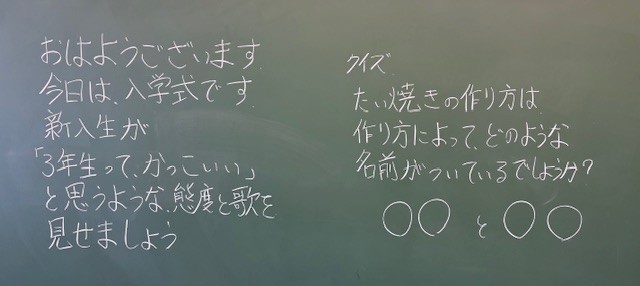 おはようございます
今日は、入学式です
新入生が
「3年生って、かっこいい」
と思うような、態度と歌を
見せましょう
クイズ
たい焼きの作り方は
作り方によって、どのような
名前がついているでしょうか?
○○と○○